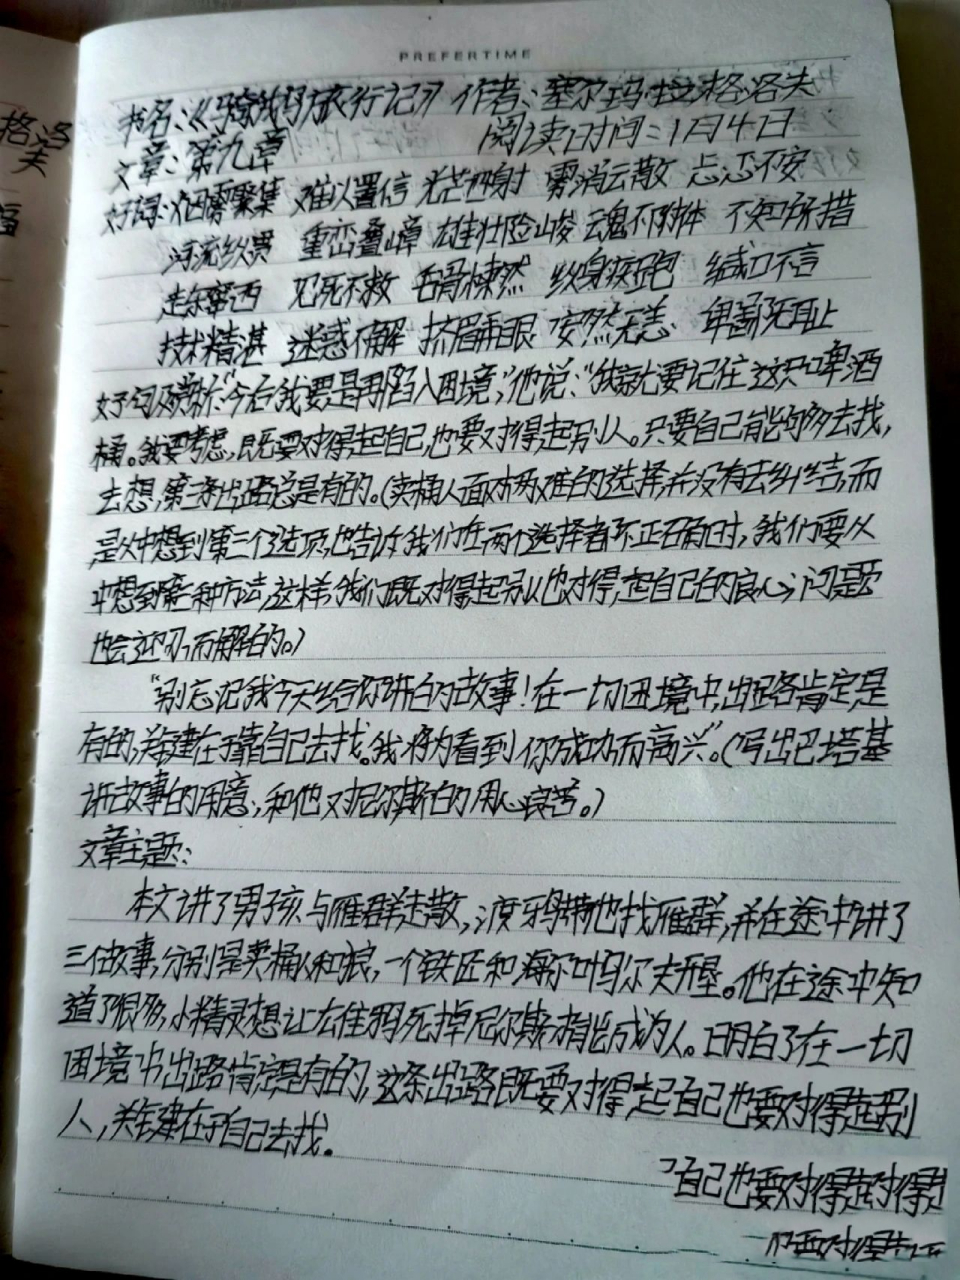 PREFERTIME
书名:《骑鹅旅行记》 作者:塞尔玛·拉格洛夫
文章:第九章 阅读时间:1月4日
好词:烟雾聚集 难以置信 光芒四射 雾消云散 忐忑不安
河流纵贯 重峦叠嶂 雄壮险峻 魂不附体 不知所措
走东窜西 见死不救 毛骨悚然 纵身疾跑 缄口不言
技术精湛 迷惑不解 挤眉弄眼 安然无恙 卑鄙无耻
好句及赏析:“今后我要是再陷入困境,”他说:“我就要记住这只啤酒
桶。我要考虑,既要对得起自己,也要对得起别人。只要自己能够多去找,
去想,第三条出路总是有的。(卖桶人面对两难的选择,并没有去纠结,而
是从中想到第三个选项,也告诉我们在两个选择都不正确时,我们要从
中想到第三种方法,这样,我们既对得起别人也对得起自己的良心,问题
也会迎刃而解的。)
“别忘记我今天给你讲的故事!在一切困境中,出路肯定是
有的,关键在于靠自己去找。我将为看到你成功而高兴”。(写出巴塔基
讲故事的用意,和他对尼尔斯的用心良苦。)
文章主题:
本文讲了男孩与雁群走散,渡鸦带他找雁群,并在途中讲了
三个故事,分别是卖桶人和狼,一个铁匠和海尔叶玛尔夫开垦。他在途中知
道了很多,小精灵想让右佳鹅死掉尼尔斯才能成为人。明白了在一切
困境中出路肯定是有的,这条出路既要对得起自己也要对得起别
人,关键在于自己去找。
自己也要对得起对得起
格洛
夫